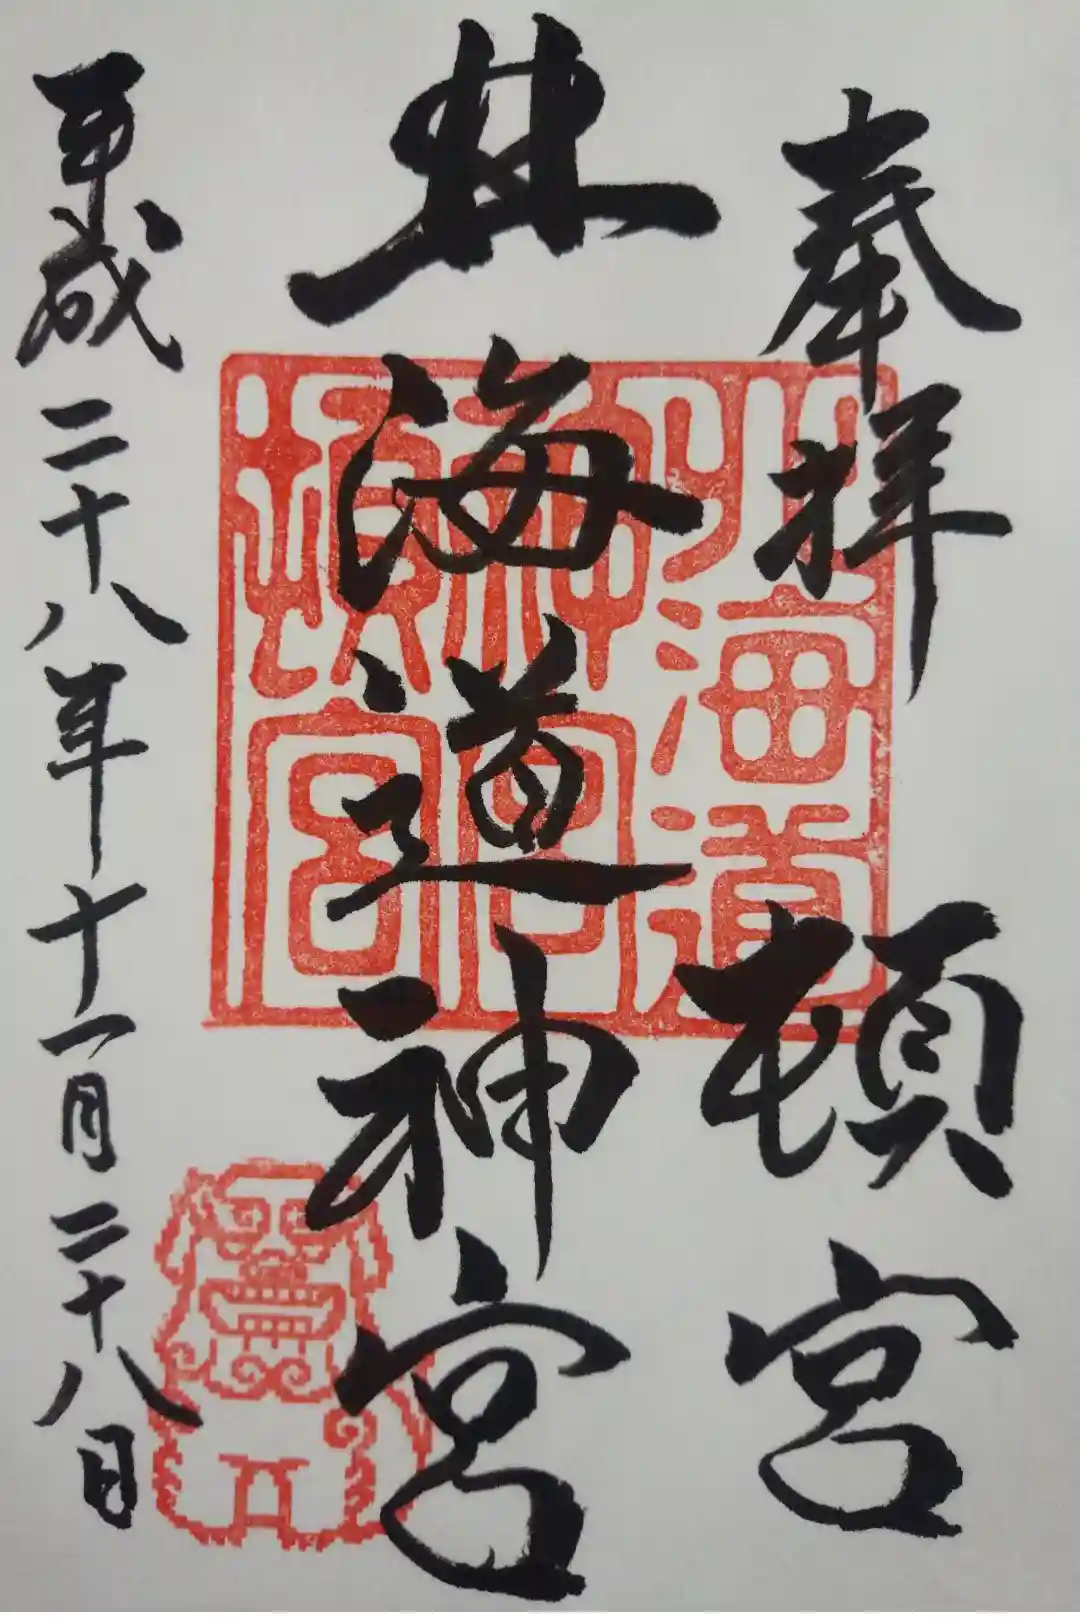 奉拝 頓宮
北海道神宮
平成二十八年十一月二十八日
北海道
神宮
頓宮